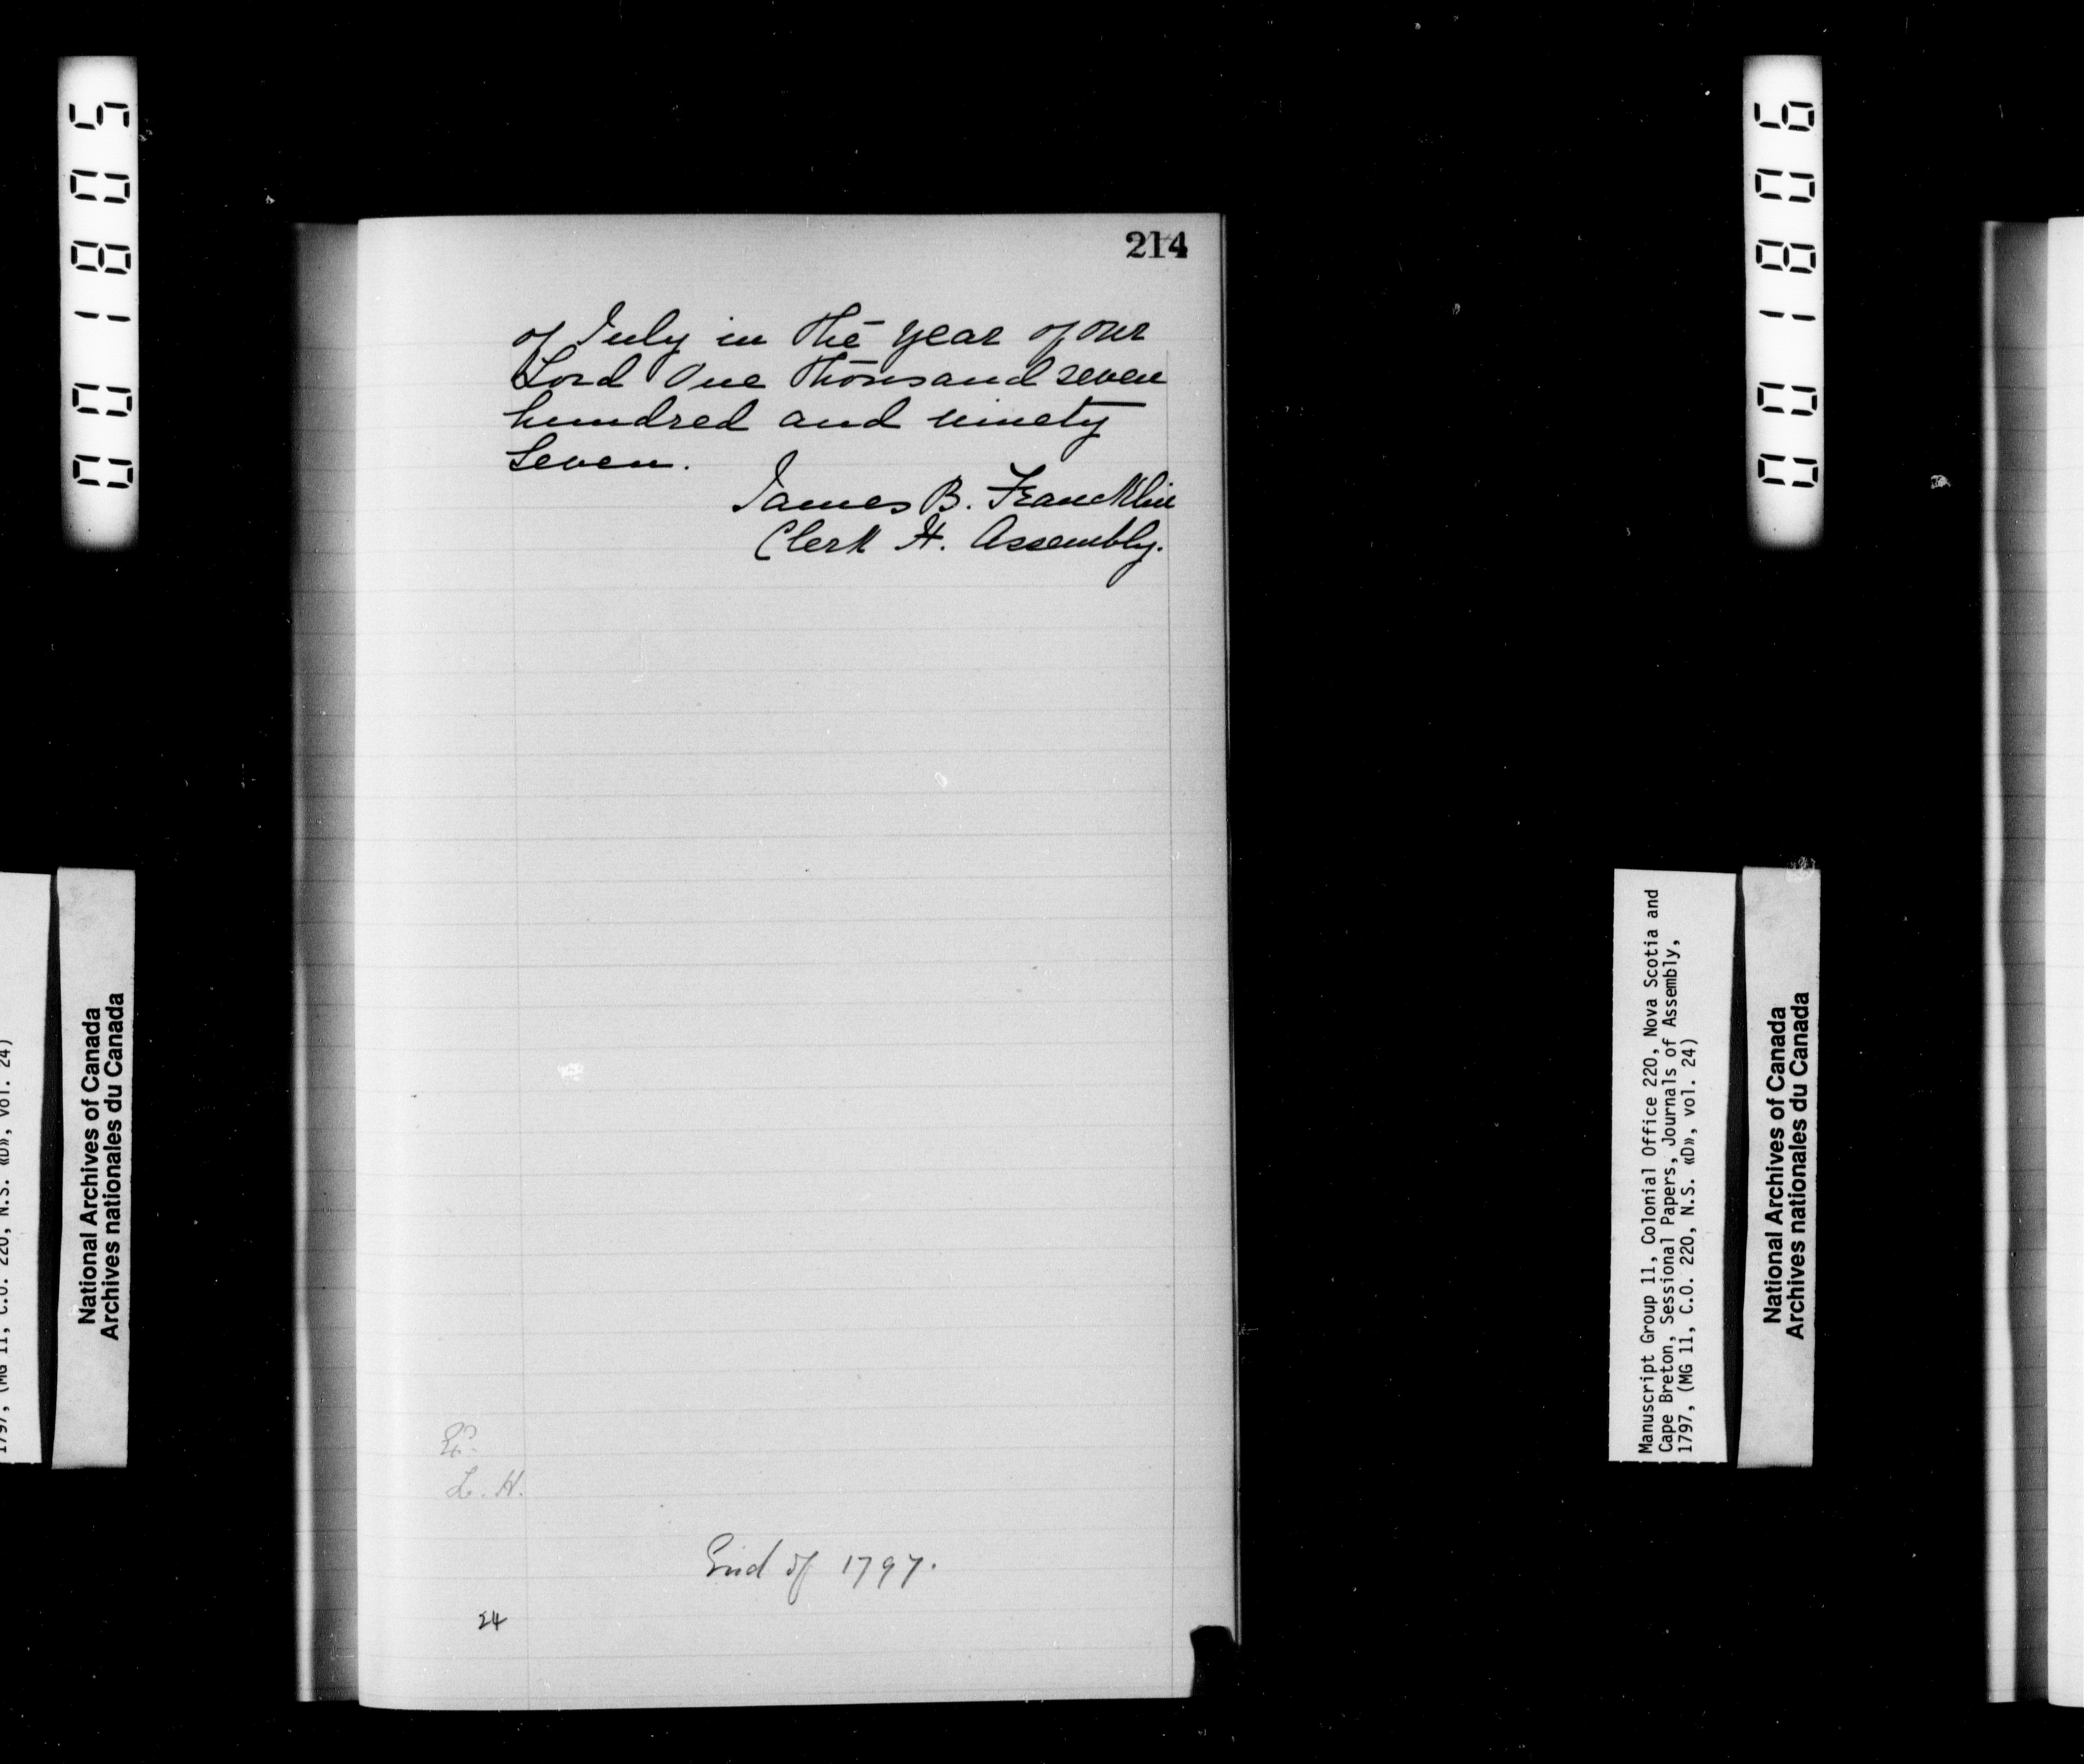 001805
214
of July in the year of our
Lord One thousand seven
hundred and ninety
Seven.
James B. Francklin
Clerk H. Assembly.
L. H.
End of 1797.
24
1797, (MG 11, C.O. 220, N.S. «D», vol. 24)
National Archives of Canada
Archives nationales du Canada
001806
Manuscript Group 11, Colonial Office 220, Nova Scotia and
Cape Breton, Sessional Papers, Journals of Assembly,
1797, (MG 11, C.O. 220, N.S. «D», vol. 24)
National Archives of Canada
Archives nationales du Canada